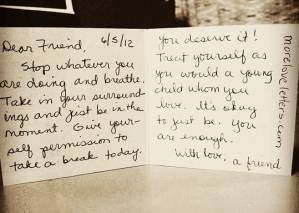 Dear Friend, 6/5/12
Stop whatever you
are doing and breathe.
Take in your surround-
ings and just be in the
moment. Give your-
self permission to
take a break today.
you deserve it!
Treat yourself as
you would a young
child whom you
love. It's okay
to just be. you
are enough.
With love, a friend
moreloveletters.com